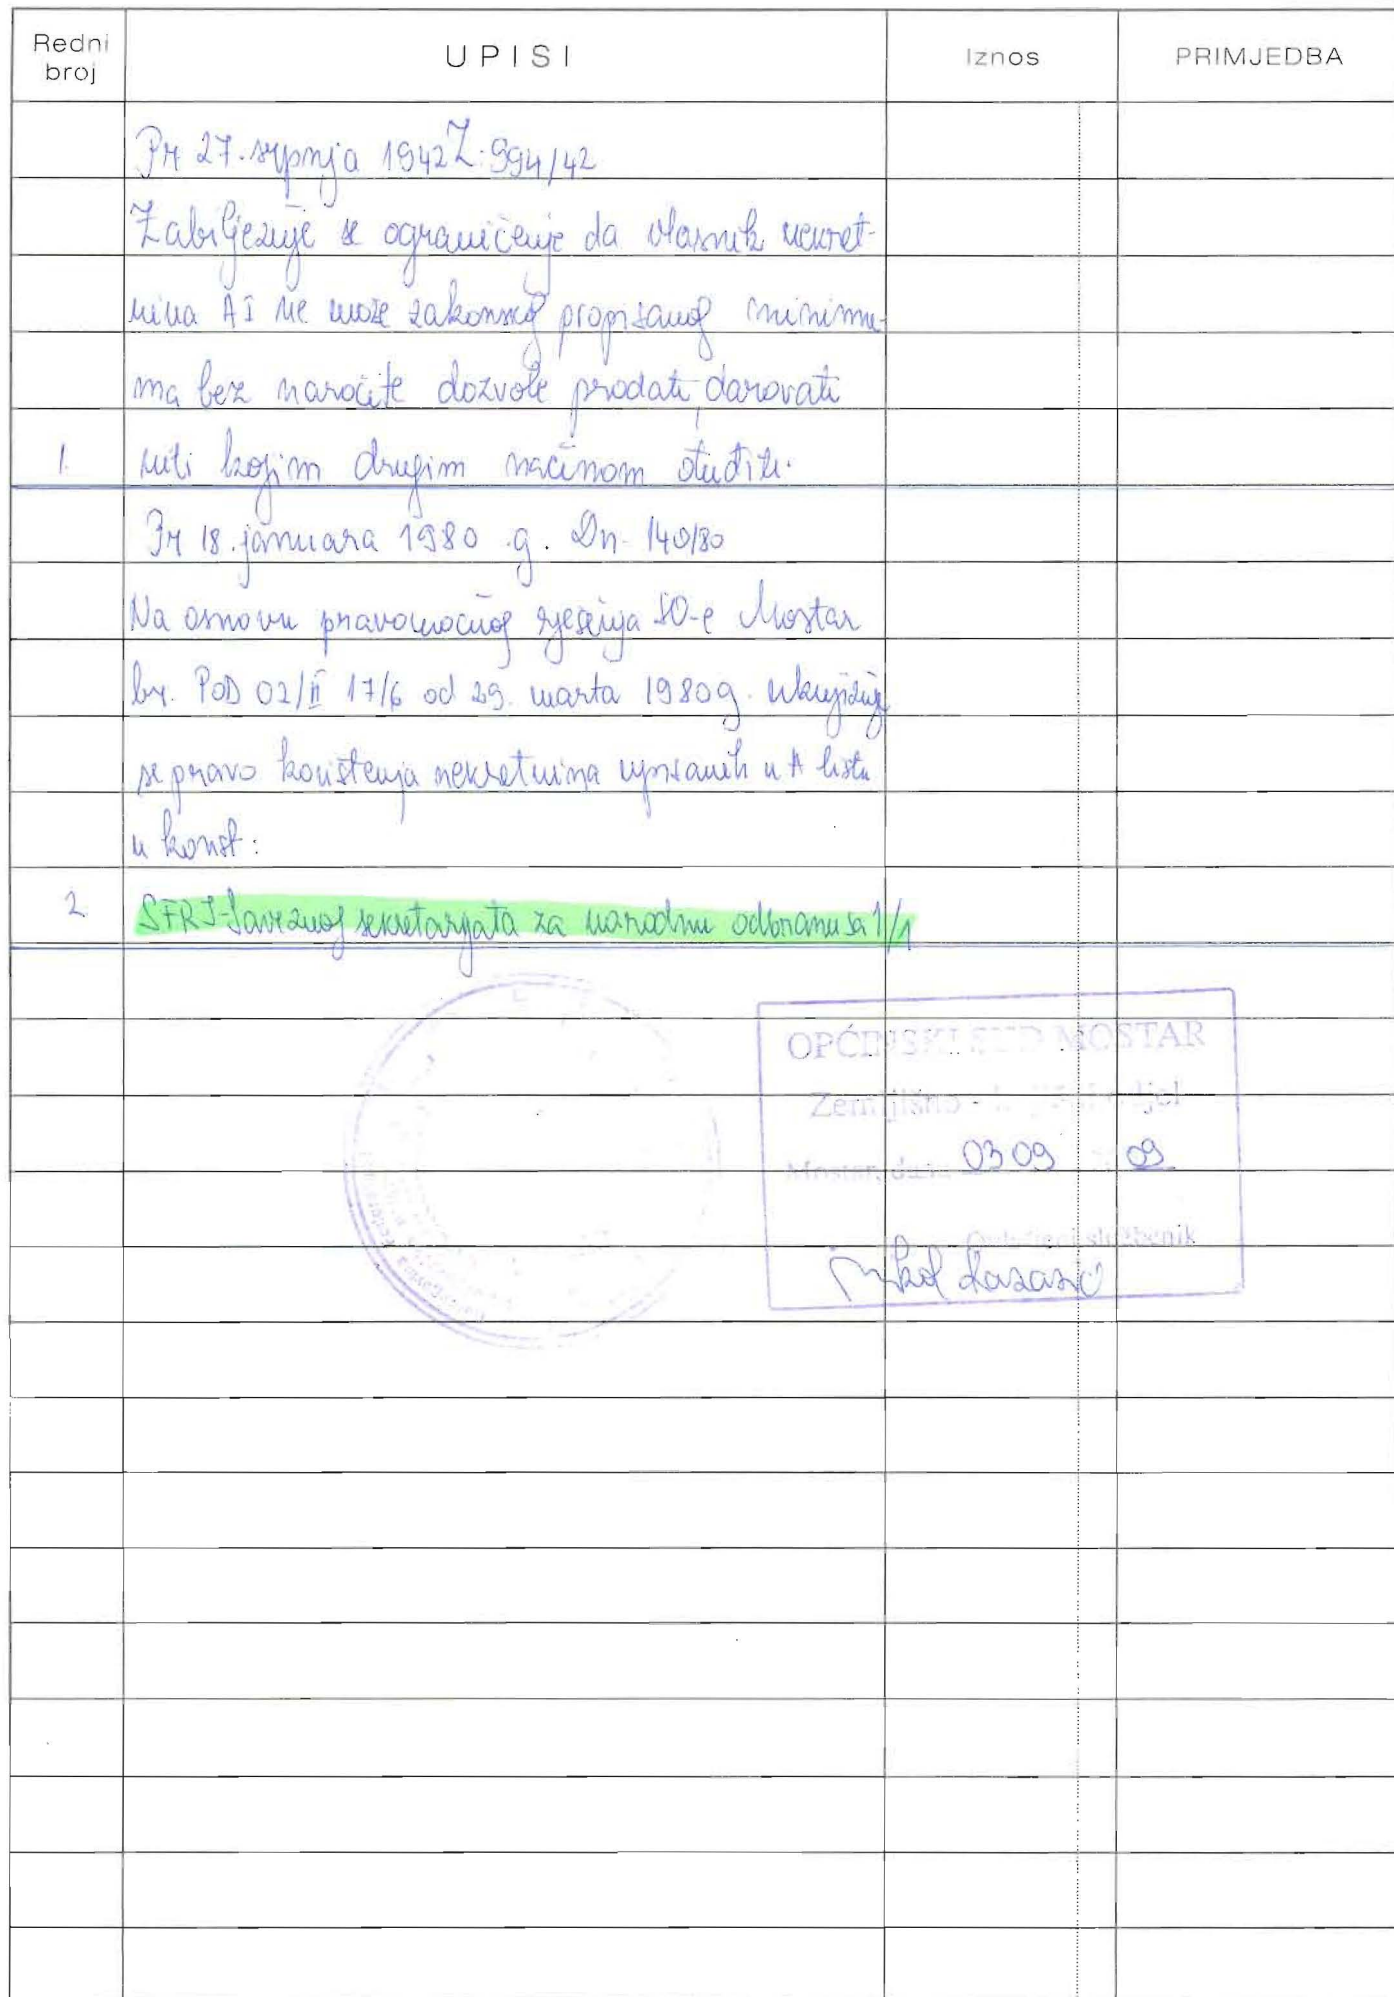 Redni broj UPISI Iznos PRIMJEDBA
Pr 27. srpnja 1942 Z. 994/42
Zabilježuje se ograničenje da vlasnik nekret-
nina A I ne može zakonskog propisanog minimu-
ma bez naročite dozvole prodati, darovati
1. niti kojim drugim načinom otuđiti.
Pr 18. januara 1980 .g. Dn- 140/80
Na osnovu pravomoćnog rješenja SO-e Mostar
br. POD 02/II 17/6 od 29. marta 1980g. uknjižuje
se pravo korištenja nekretnina upisanih u A listu
u korist:
2 SFRJ-Saveznog sekretarijata za narodnu odbranu sa 1/1
OPĆINSKI SUD MOSTAR
Zemljišno -
Mostar, dana 03 09 09
službenik